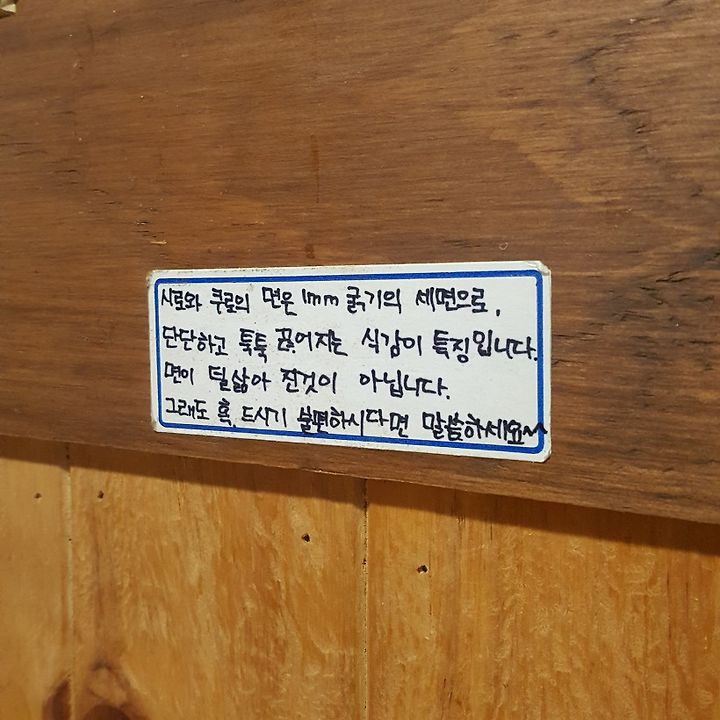 시로와 쿠로의 면은 1mm 굵기의 세면으로,
단단하고 툭툭 끊어지는 식감이 특징입니다.
면이 덜삶아 진것이 아닙니다.
그래도 혹, 드시기 불편하시다면 말씀하세요~